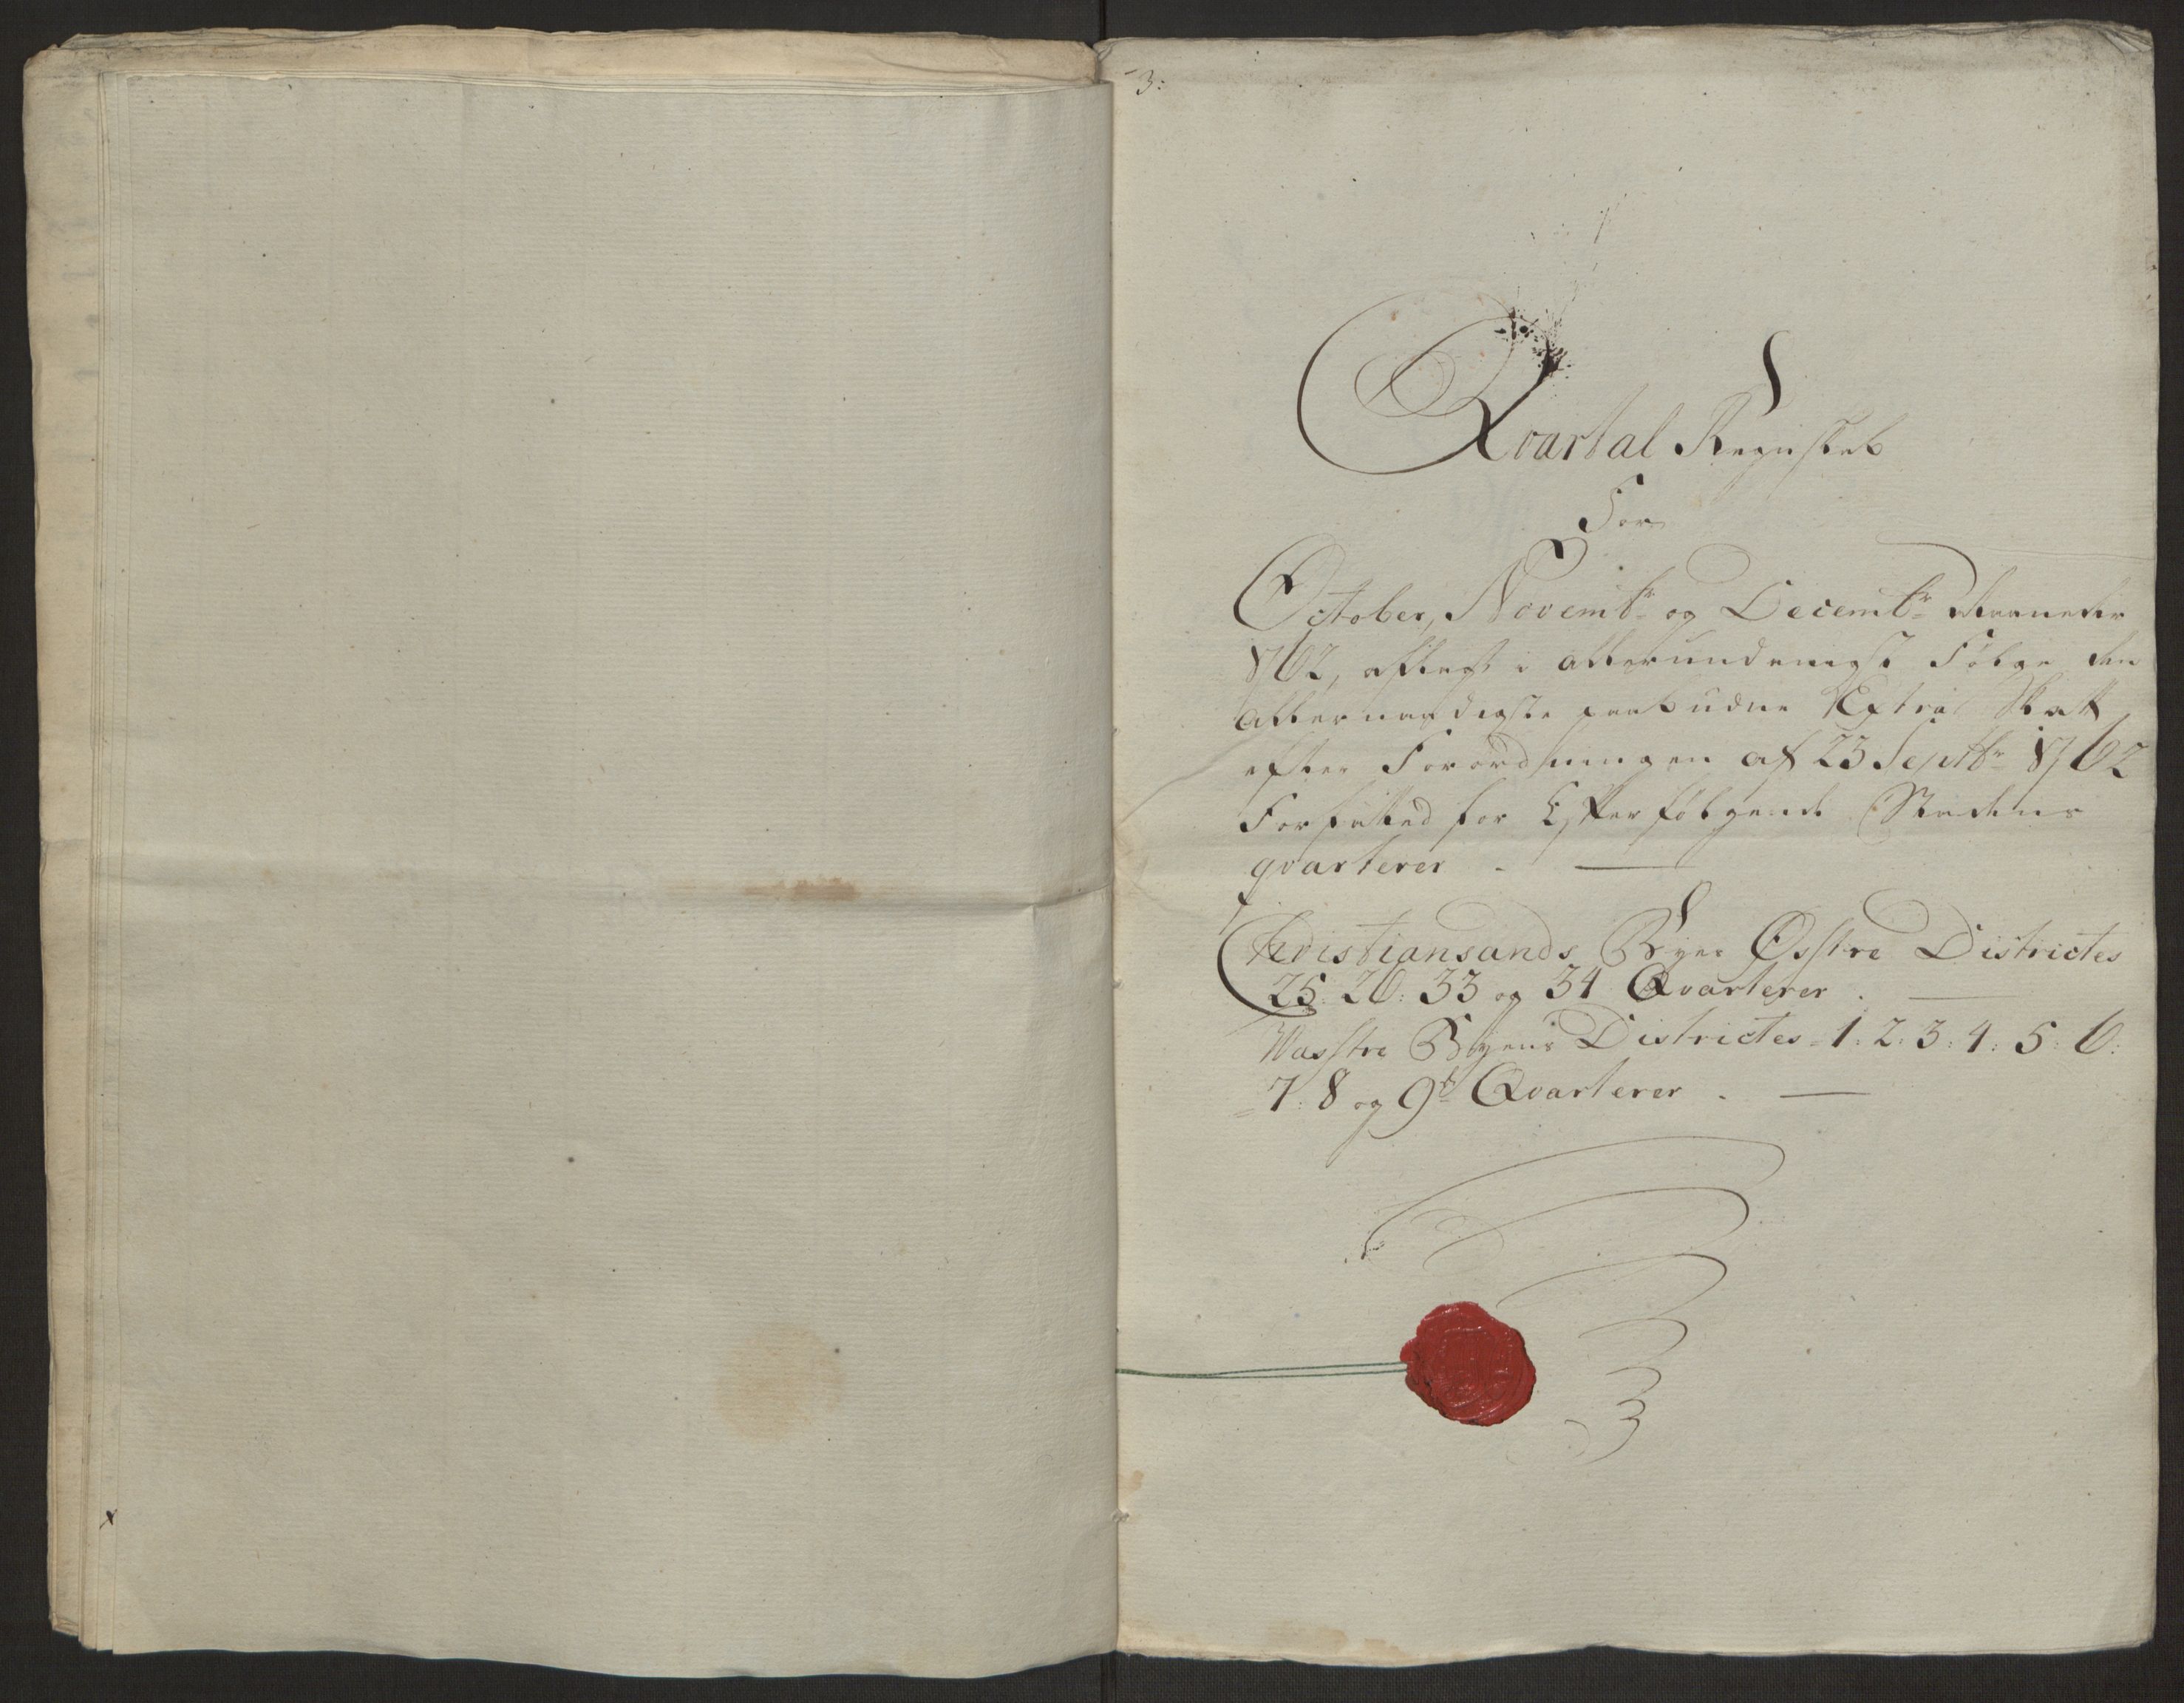 3:
Qvartal Register
For
October, Novembr og Decembr Maaneder
1762, aflagt i allerundernigst Følge den
allernaadigste paabudne Extra Skatt
efter Forordningen af 23 Septbr 1762
Forfatted for Efterfølgende Stædens
qvarterer. —
Christiansands Byes Østre Districtes
25: 26: 33 og 34 Qvarterer. —
Wæstre Byens Districtes 1: 2: 3: 4: 5: 6:
=7: 8 og 9de Qvarterer. —